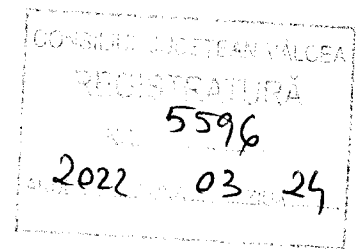 CONSILIUL JUDEȚEAN VÂLCEA
REGISTRATURĂ
NR. 5596
2022 03 24